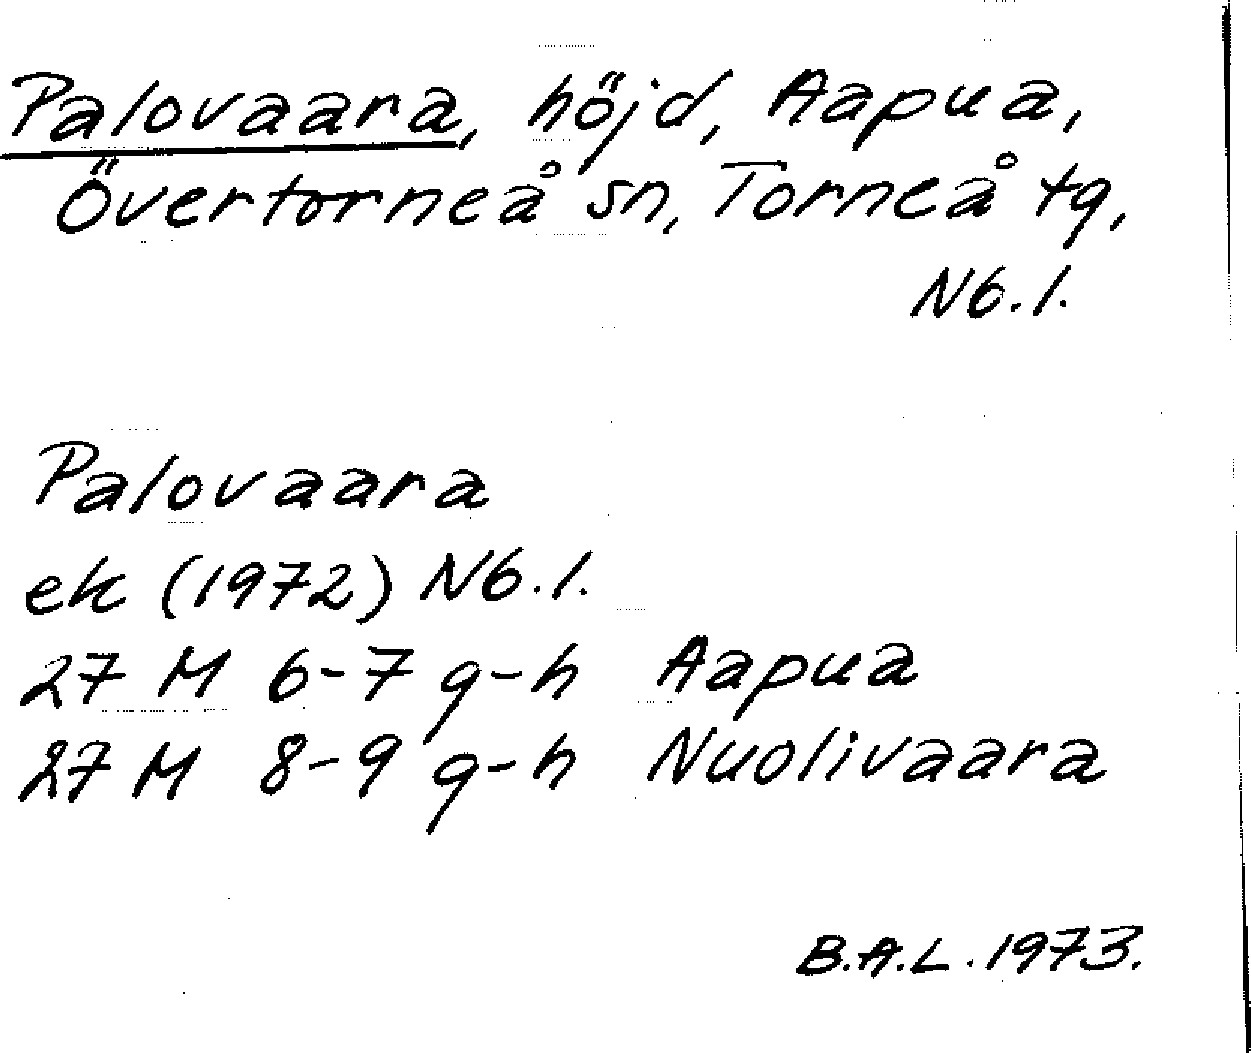 Palovaara, höjd, Aapua,
Övertorneå sn, Torneå tg,
Nb.l.
Palovaara
ek (1972) Nb.l.
27 M 6-7 g-h Aapua
27 M 8-9 g-h Nuolivaara
B.A.L. 1973.